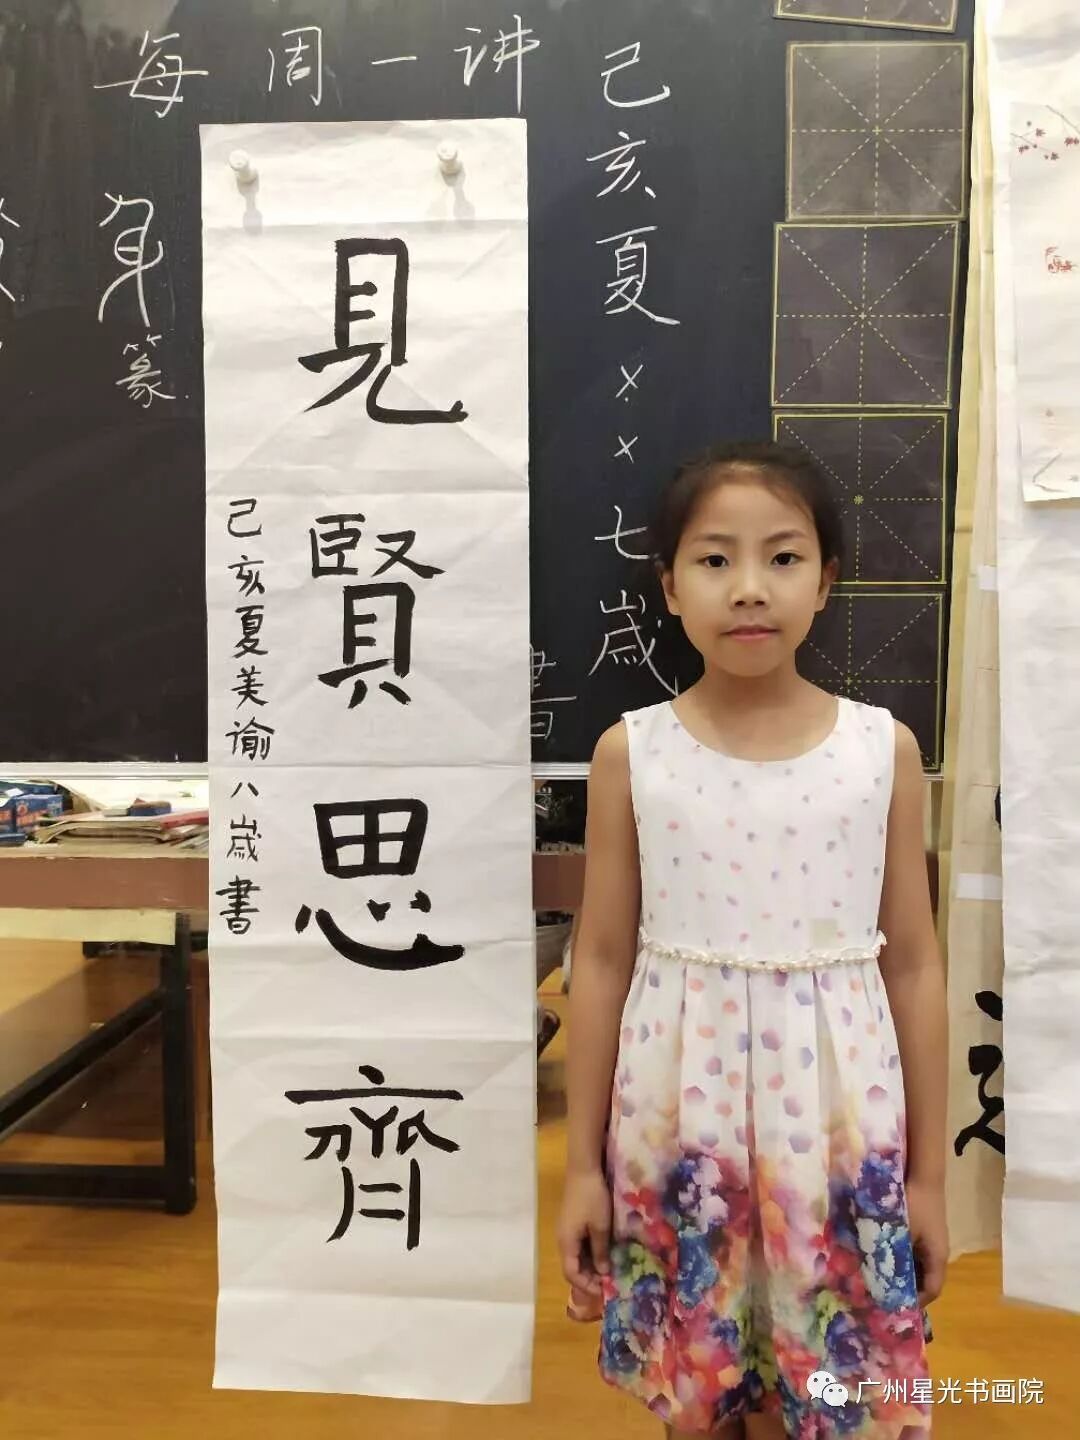 每周一讲
己亥夏××七歲
書
身
篆
見賢思齊
己亥夏美谕八歲書
广州星光书画院